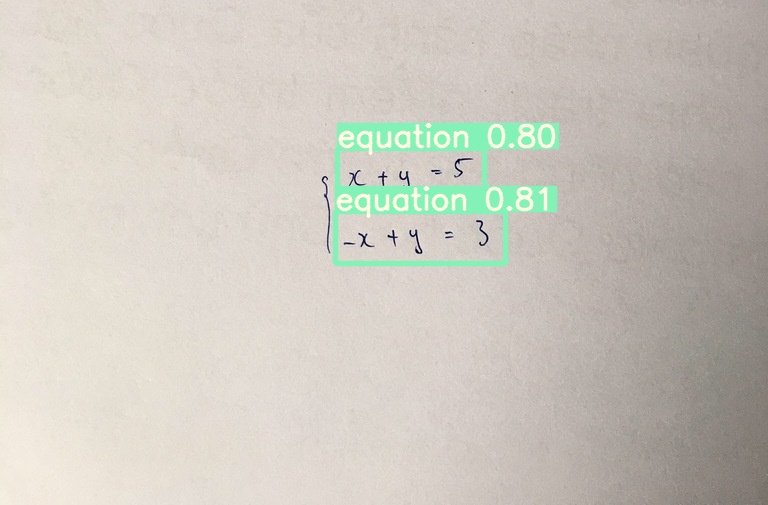 equation 0.80
x + y = 5
equation 0.81
-x + y = 3